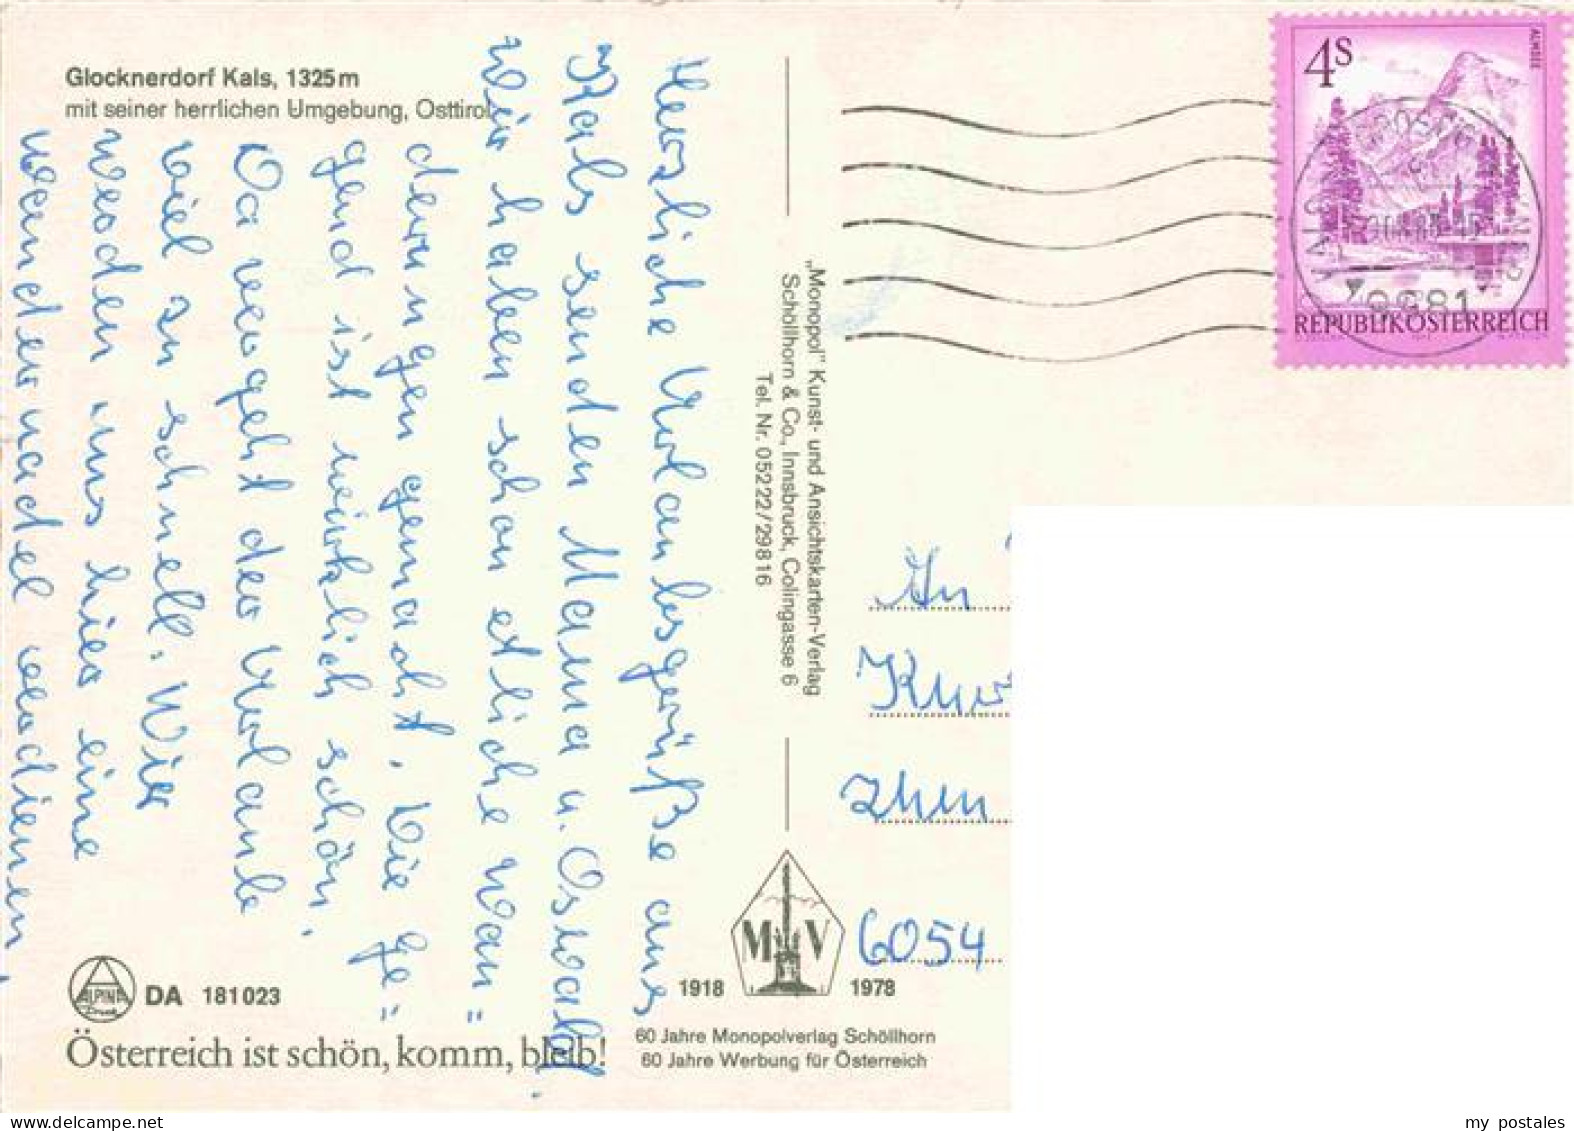 Glocknerdorf Kals, 1325 m
mit seiner herrlichen Umgebung, Osttirol
Herzliche Urlaubsgrüße aus
Kals senden Mama u. Oswald.
Wir haben schon etliche Wan=
derungen gemacht. Die Ge=
gend ist wirklich schön.
Da vergeht der Urlaub
viel zu schnell. Wir
werden uns hier eine
Wandernadel verdienen,
„Monopol" Kunst- und Ansichtskarten-Verlag
Schöllhorn & Co., Innsbruck, Colingasse 6
Tel. Nr. 05222/29816
4S
ALMSEE
REPUBLIK ÖSTERREICH
9981
An
6054
MV
1918 1978
60 Jahre Monopolverlag Schöllhorn
60 Jahre Werbung für Österreich
ALPINA
Druck
DA 181 023
Österreich ist schön, komm, bleib!
my postales